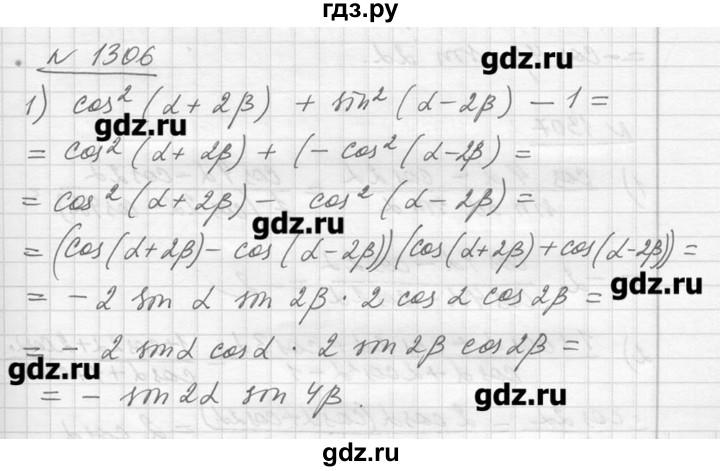 гдз.ру
№ 1306
gdz.ru
1) cos² (α + 2β) + sin² (α - 2β) - 1 =
gdz.ru
= cos² (α + 2β) + (- cos² (α - 2β) =
= cos² (α + 2β) - cos² (α - 2β) =
gdz.ru
= (cos (α + 2β) - cos (α - 2β)) (cos (α + 2β) + cos (α - 2β)) =
gdz.ru
= - 2 sin α sin 2β · 2 cos α cos 2β =
= - 2 sin α cos α · 2 sin 2β cos 2β =
gdz.ru
= - sin 2α sin 4β.
gdz.ru
gdz.ru